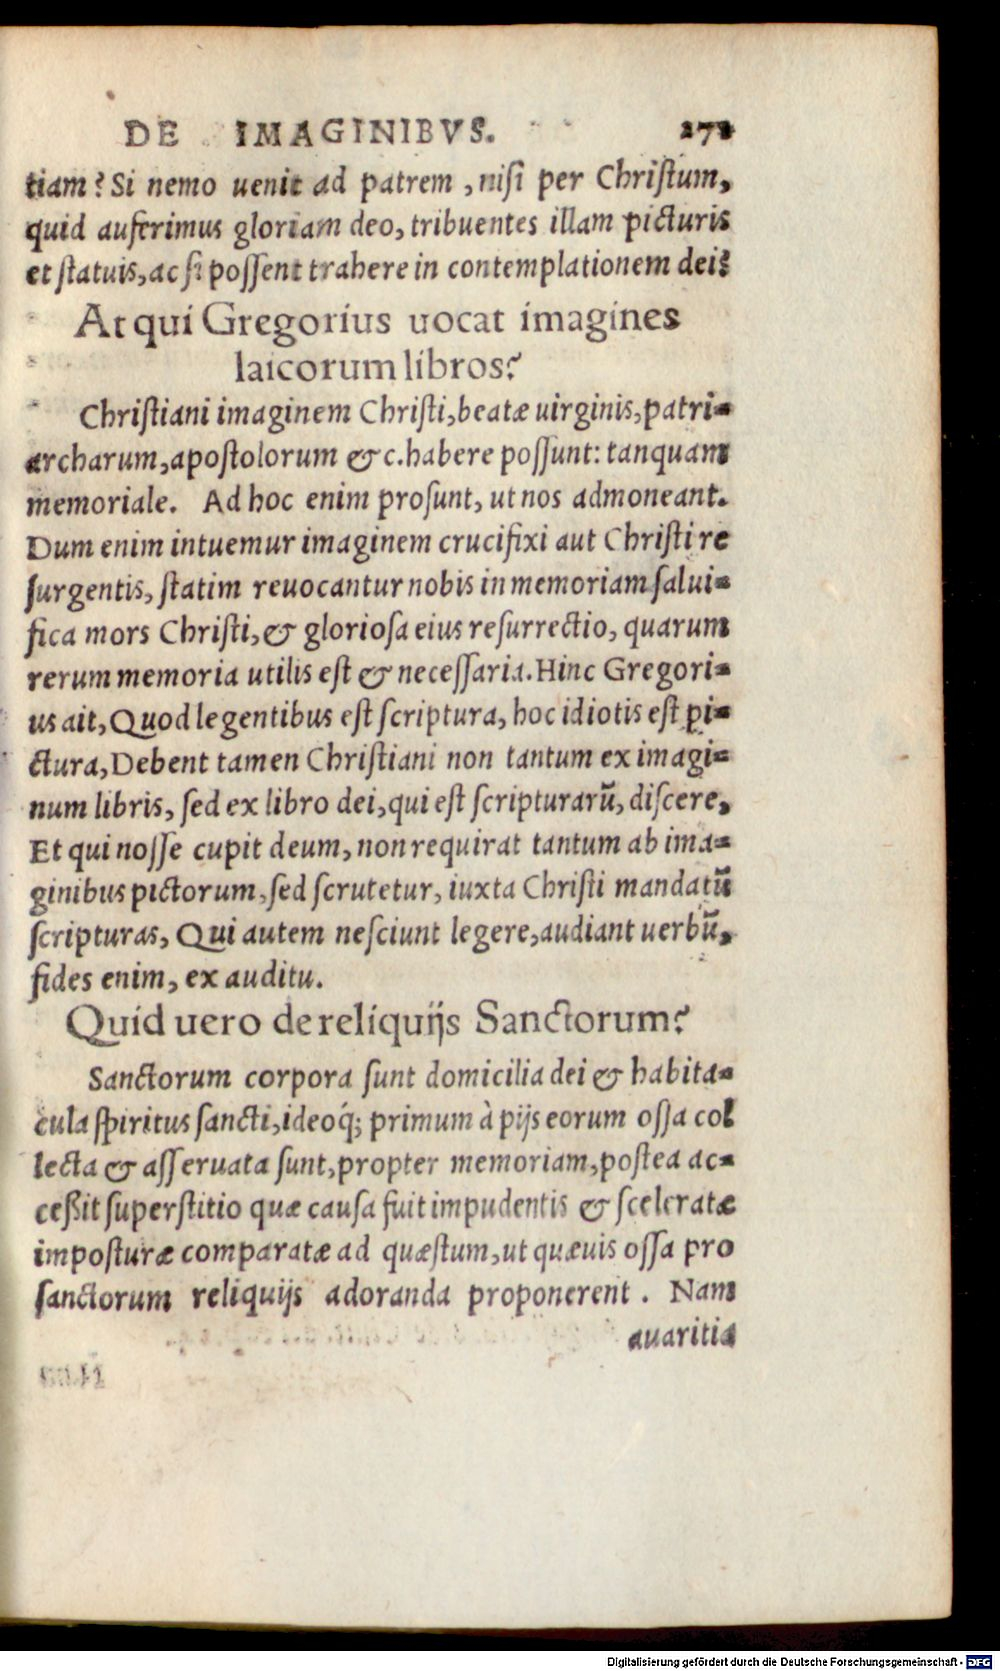 DE IMAGINIBVS.
tiam? Si nemo uenit ad patrem, nisi per Christum,
quid auferimus gloriam deo, tribuentes illam picturis
et statuis, ac si possent trahere in contemplationem dei?
At qui Gregorius uocat imagines
laicorum libros?
Christiani imaginem Christi, beatæ uirginis, patri-
archarum, apostolorum & c. habere possunt: tanquam
memoriale. Ad hoc enim prosunt, ut nos admoneant.
Dum enim intuemur imaginem crucifixi aut Christi re
surgentis, statim reuocantur nobis in memoriam salui-
fica mors Christi, & gloriosa eius resurrectio, quarum
rerum memoria utilis est & necessaria. Hinc Gregori-
us ait, Quod legentibus est scriptura, hoc idiotis est pi-
ctura, Debent tamen Christiani non tantum ex imagi-
num libris, sed ex libro dei, qui est scripturarū, discere,
Et qui nosse cupit deum, non requirat tantum ab ima-
ginibus pictorum, sed scrutetur, iuxta Christi mandatū
scripturas, Qui autem nesciunt legere, audiant uerbū,
fides enim, ex auditu.
Quid uero de reliquijs Sanctorum?
Sanctorum corpora sunt domicilia dei & habita-
cula spiritus sancti, ideoq́; primum à pijs eorum ossa col
lecta & asseruata sunt, propter memoriam, postea ac-
ceßit superstitio quæ causa fuit impudentis & sceleratæ
imposturæ comparatæ ad quæstum, ut quæuis ossa pro
sanctorum reliquijs adoranda proponerent. Nam
auaritia
Digitalisierung gefördert durch die Deutsche Forschungsgemeinschaft - DFG